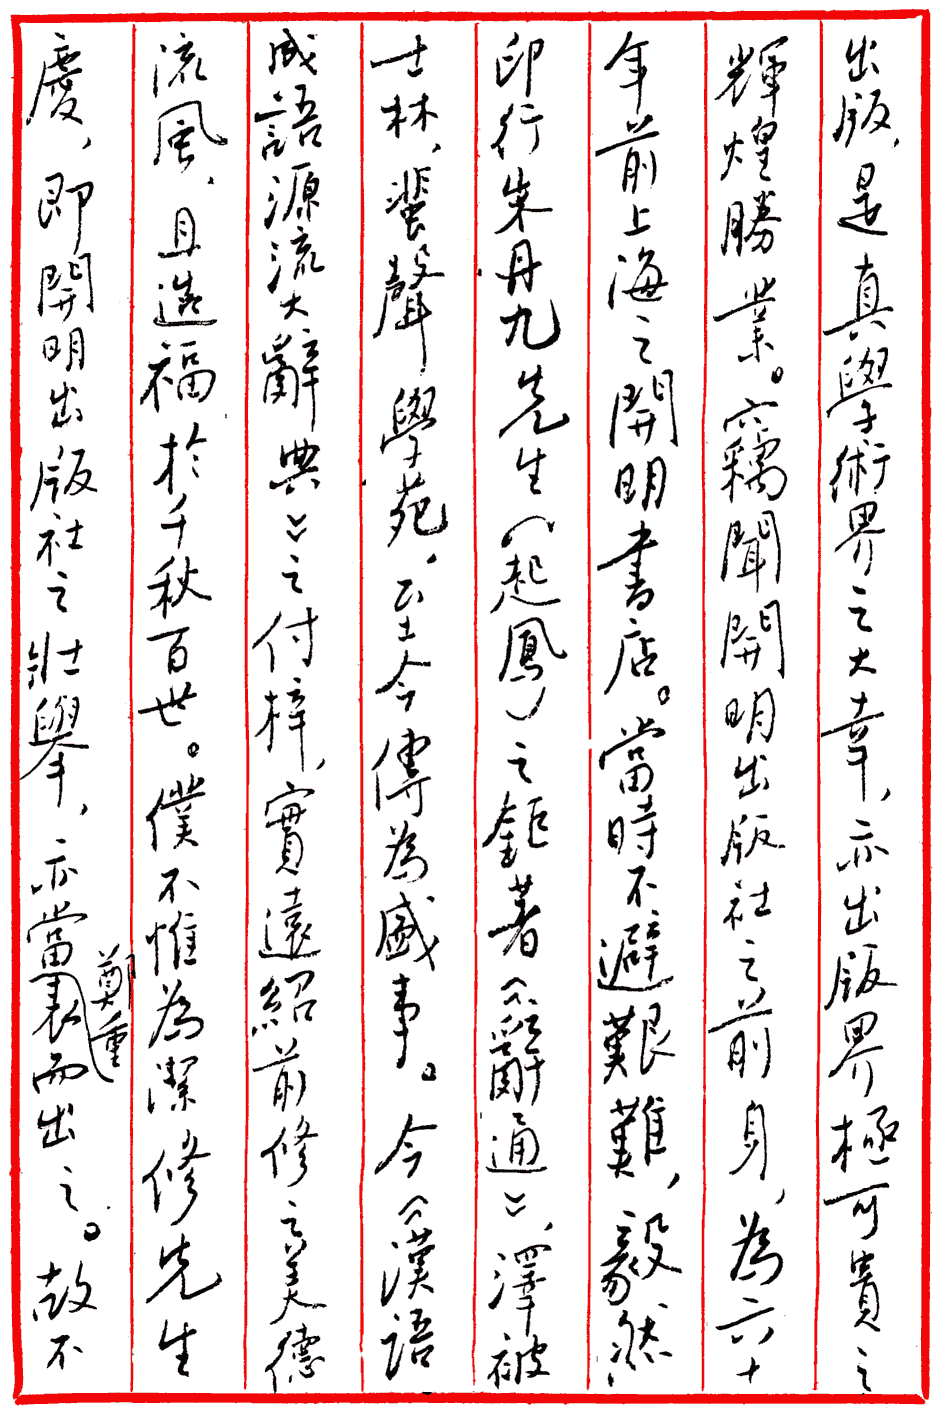 出版，是真學術界之大幸，亦出版界極可貴之
輝煌勝業。竊聞開明出版社之前身，為六十
年前上海之開明書店。當時不避艱難，毅然
印行朱丹九先生（起鳳）之鉅著《辭通》，澤被
士林，蜚聲學苑。至今傳為盛事。今《漢語
成語源流大辭典》之付梓，實遠紹前修之美德
流風，且造福於千秋百世。僕不惟為潔修先生
慶，即開明出版社之壯舉，亦當鄭重表而出之。故不